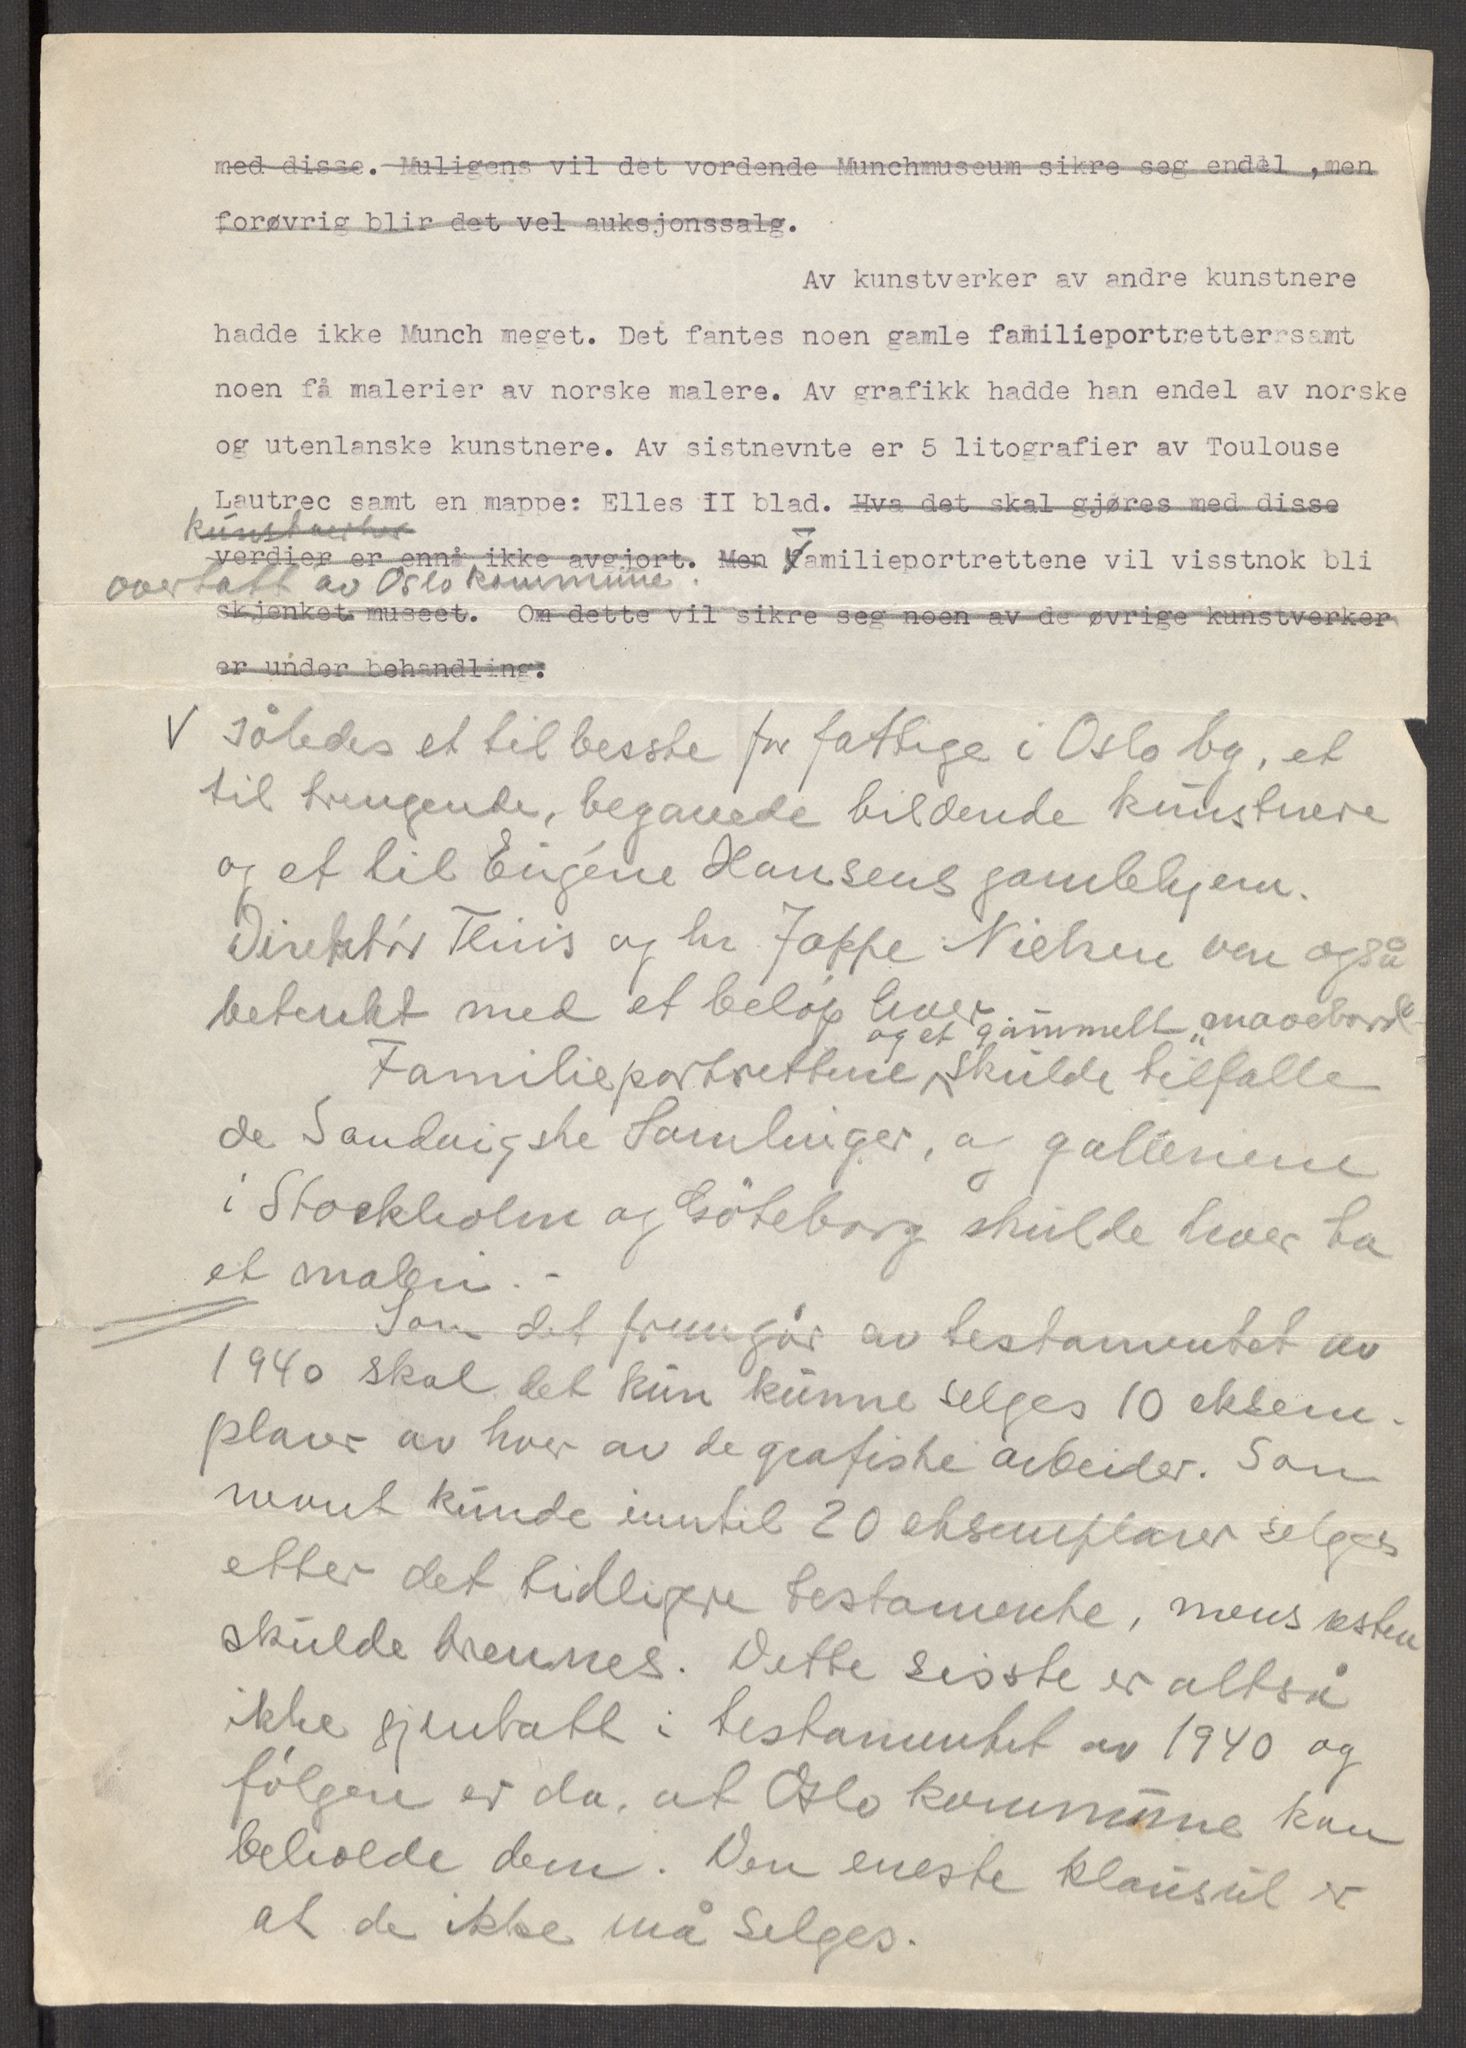 med disse. Muligens vil det vordende Munchmuseum sikre seg endel ,men
forøvrig blir det vel auksjonssalg.
Av kunstverker av andre kunstnere
hadde ikke Munch meget. Det fantes noen gamle familieportretterrsamt
noen få malerier av norske malere. Av grafikk hadde han endel av norske
og utenlanske kunstnere. Av sistnevnte er 5 litografier av Toulouse
Lautrec samt en mappe: Elles II blad. Hva det skal gjøres med disse
kunstverker
verdier er ennå ikke avgjort. Men Familieportrettene vil visstnok bli
overtatt av Oslo kommune.
skjenket museet. Om dette vil sikre seg noen av de øvrige kunstverker
er under behandling.
V således et til besste for fattige i Oslo by, et
til trengende, begavede bildende kunstnere
og et til Eugéne Hansens gamlehjem.
Direktør Thiis og hr Jappe Nielsen var også
betenkt med et beløp hver
og et gammelt „mavebord"
Familieportrettene skulde tilfalle
de Sandvigske Samlinger, og galleriene
i Stockholm og Göteborg skulde hver ha
et maleri. -
Som det fremgår av testamentet av
1940 skal det kun kunne selges 10 eksem-
plarer av hver av de grafiske arbeider. Som
nevnt kunde inntil 20 eksemplarer selges
etter det tidligere testamente, mens resten
skulde brennes. Dette sisste er altså
ikke gjentatt i testamentet av 1940 og
følgen er da, at Oslo kommune kan
beholde dem. Den eneste klausul er
at de ikke må selges.